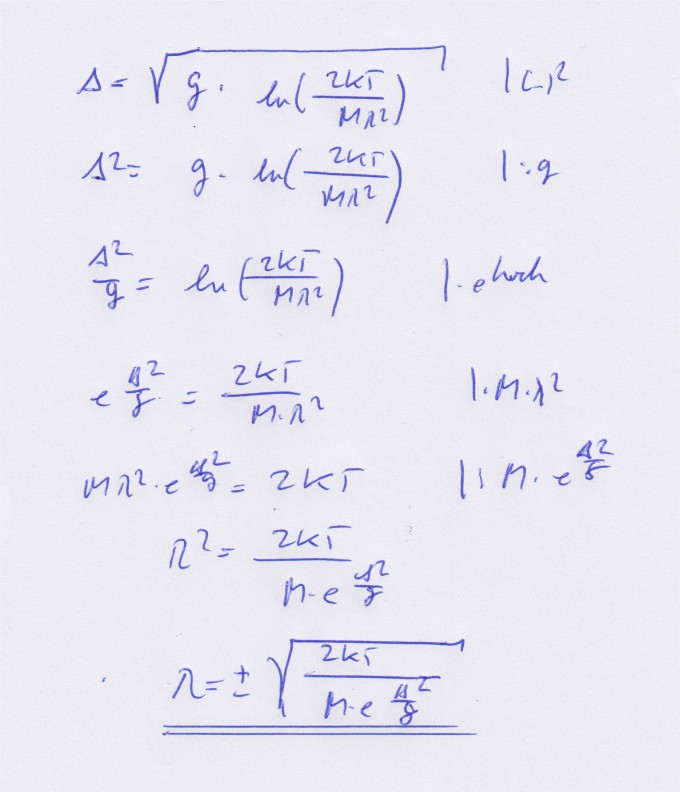 s = √(g · ln(2kT/(Mλ²))) |(-)²
s² = g · ln(2kT/(Mλ²)) |:g
s²/g = ln(2kT/(Mλ²)) |· e hoch
e^(s²/g) = 2kT/(M·λ²) |·M·λ²
Mλ²·e^(s²/g) = 2kT |: M·e^(s²/g)
λ² = 2kT/(M·e^(s²/g))
λ = ± √(2kT/(M·e^(s²/g)))